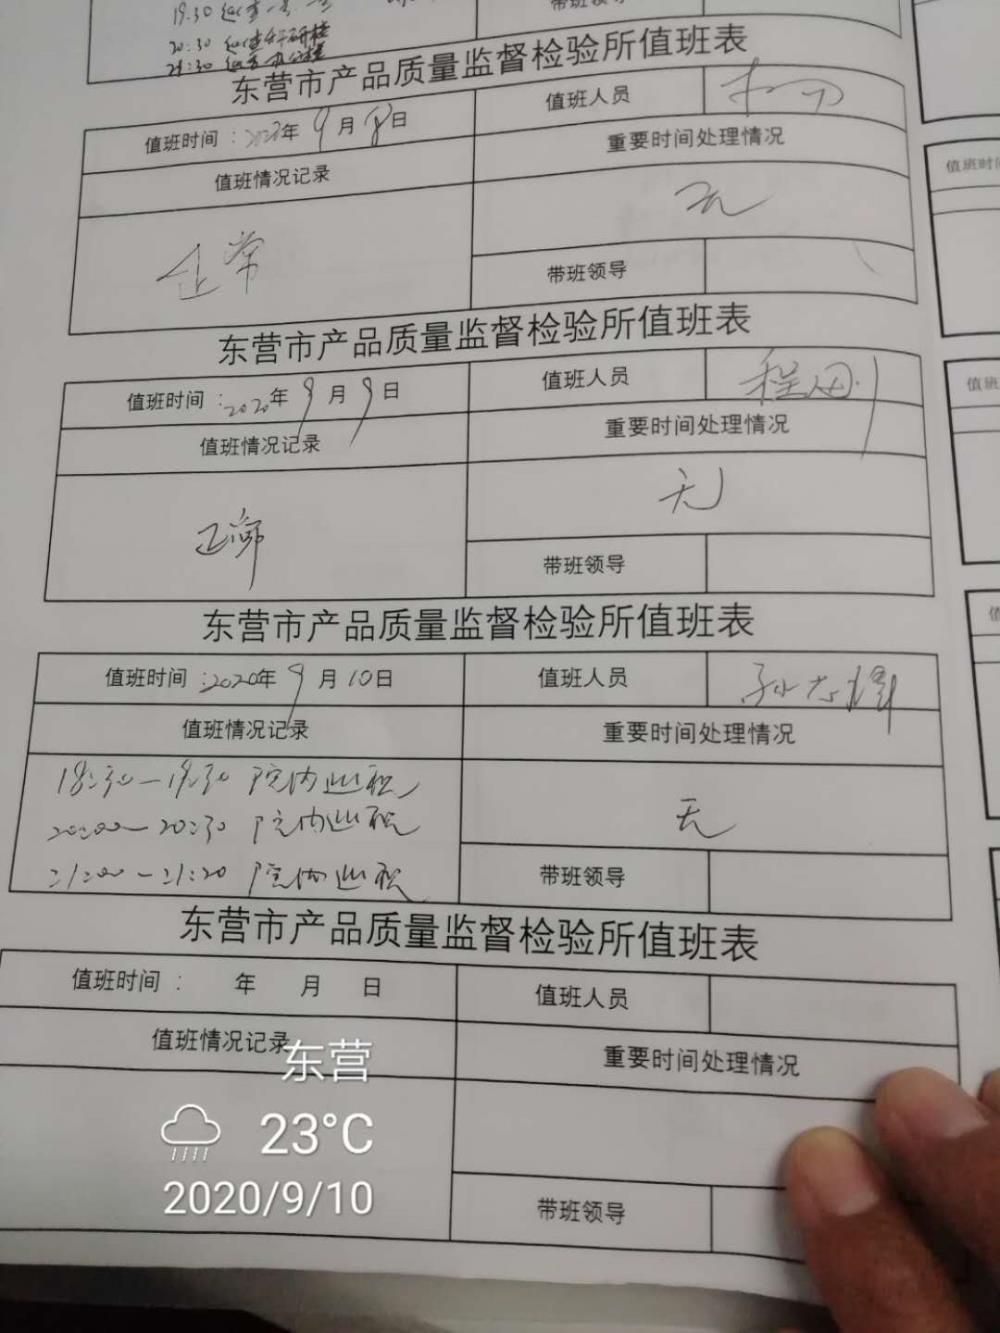 19:30
带班领导
20:30
21:30
东营市产品质量监督检验所值班表
值班时间：2020年9月8日 值班人员
值班情况记录 重要时间处理情况
正常 无
带班领导
东营市产品质量监督检验所值班表
值班时间：2020年9月9日 值班人员
值班情况记录 重要时间处理情况
正常 无
带班领导
东营市产品质量监督检验所值班表
值班时间：2020年9月10日 值班人员
值班情况记录 重要时间处理情况
18:30—19:30 院内巡视
20:00—20:30 院内巡视
无
21:00—21:20 院内巡视
带班领导
东营市产品质量监督检验所值班表
值班时间： 年 月 日 值班人员
值班情况记录 重要时间处理情况
带班领导
东营
23°C
2020/9/10
值班时间
值班
值